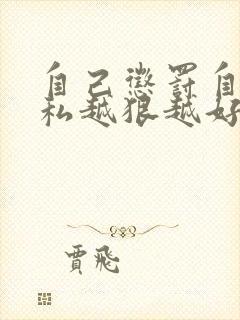 自己懲罰自
私越狠越好
賈飛